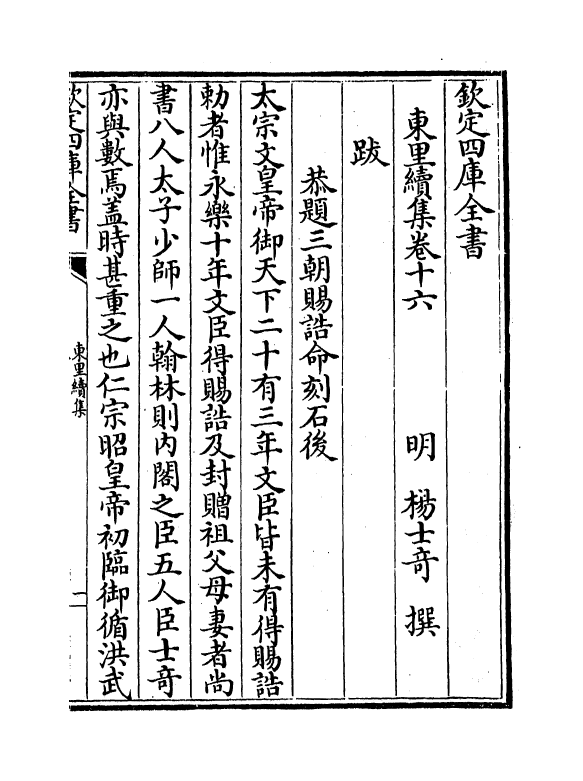 欽定四庫全書
東里續集卷十六
明 楊士竒 撰
跋
恭題三朝賜誥命刻石後
太宗文皇帝御天下二十有三年文臣皆未有得賜誥
勅者惟永樂十年文臣得賜誥及封贈祖父母妻者尚
書八人太子少師一人翰林則内閣之臣五人臣士竒
亦與數焉蓋時甚重之也仁宗昭皇帝初臨御循洪武
欽定四庫全書
東里續集